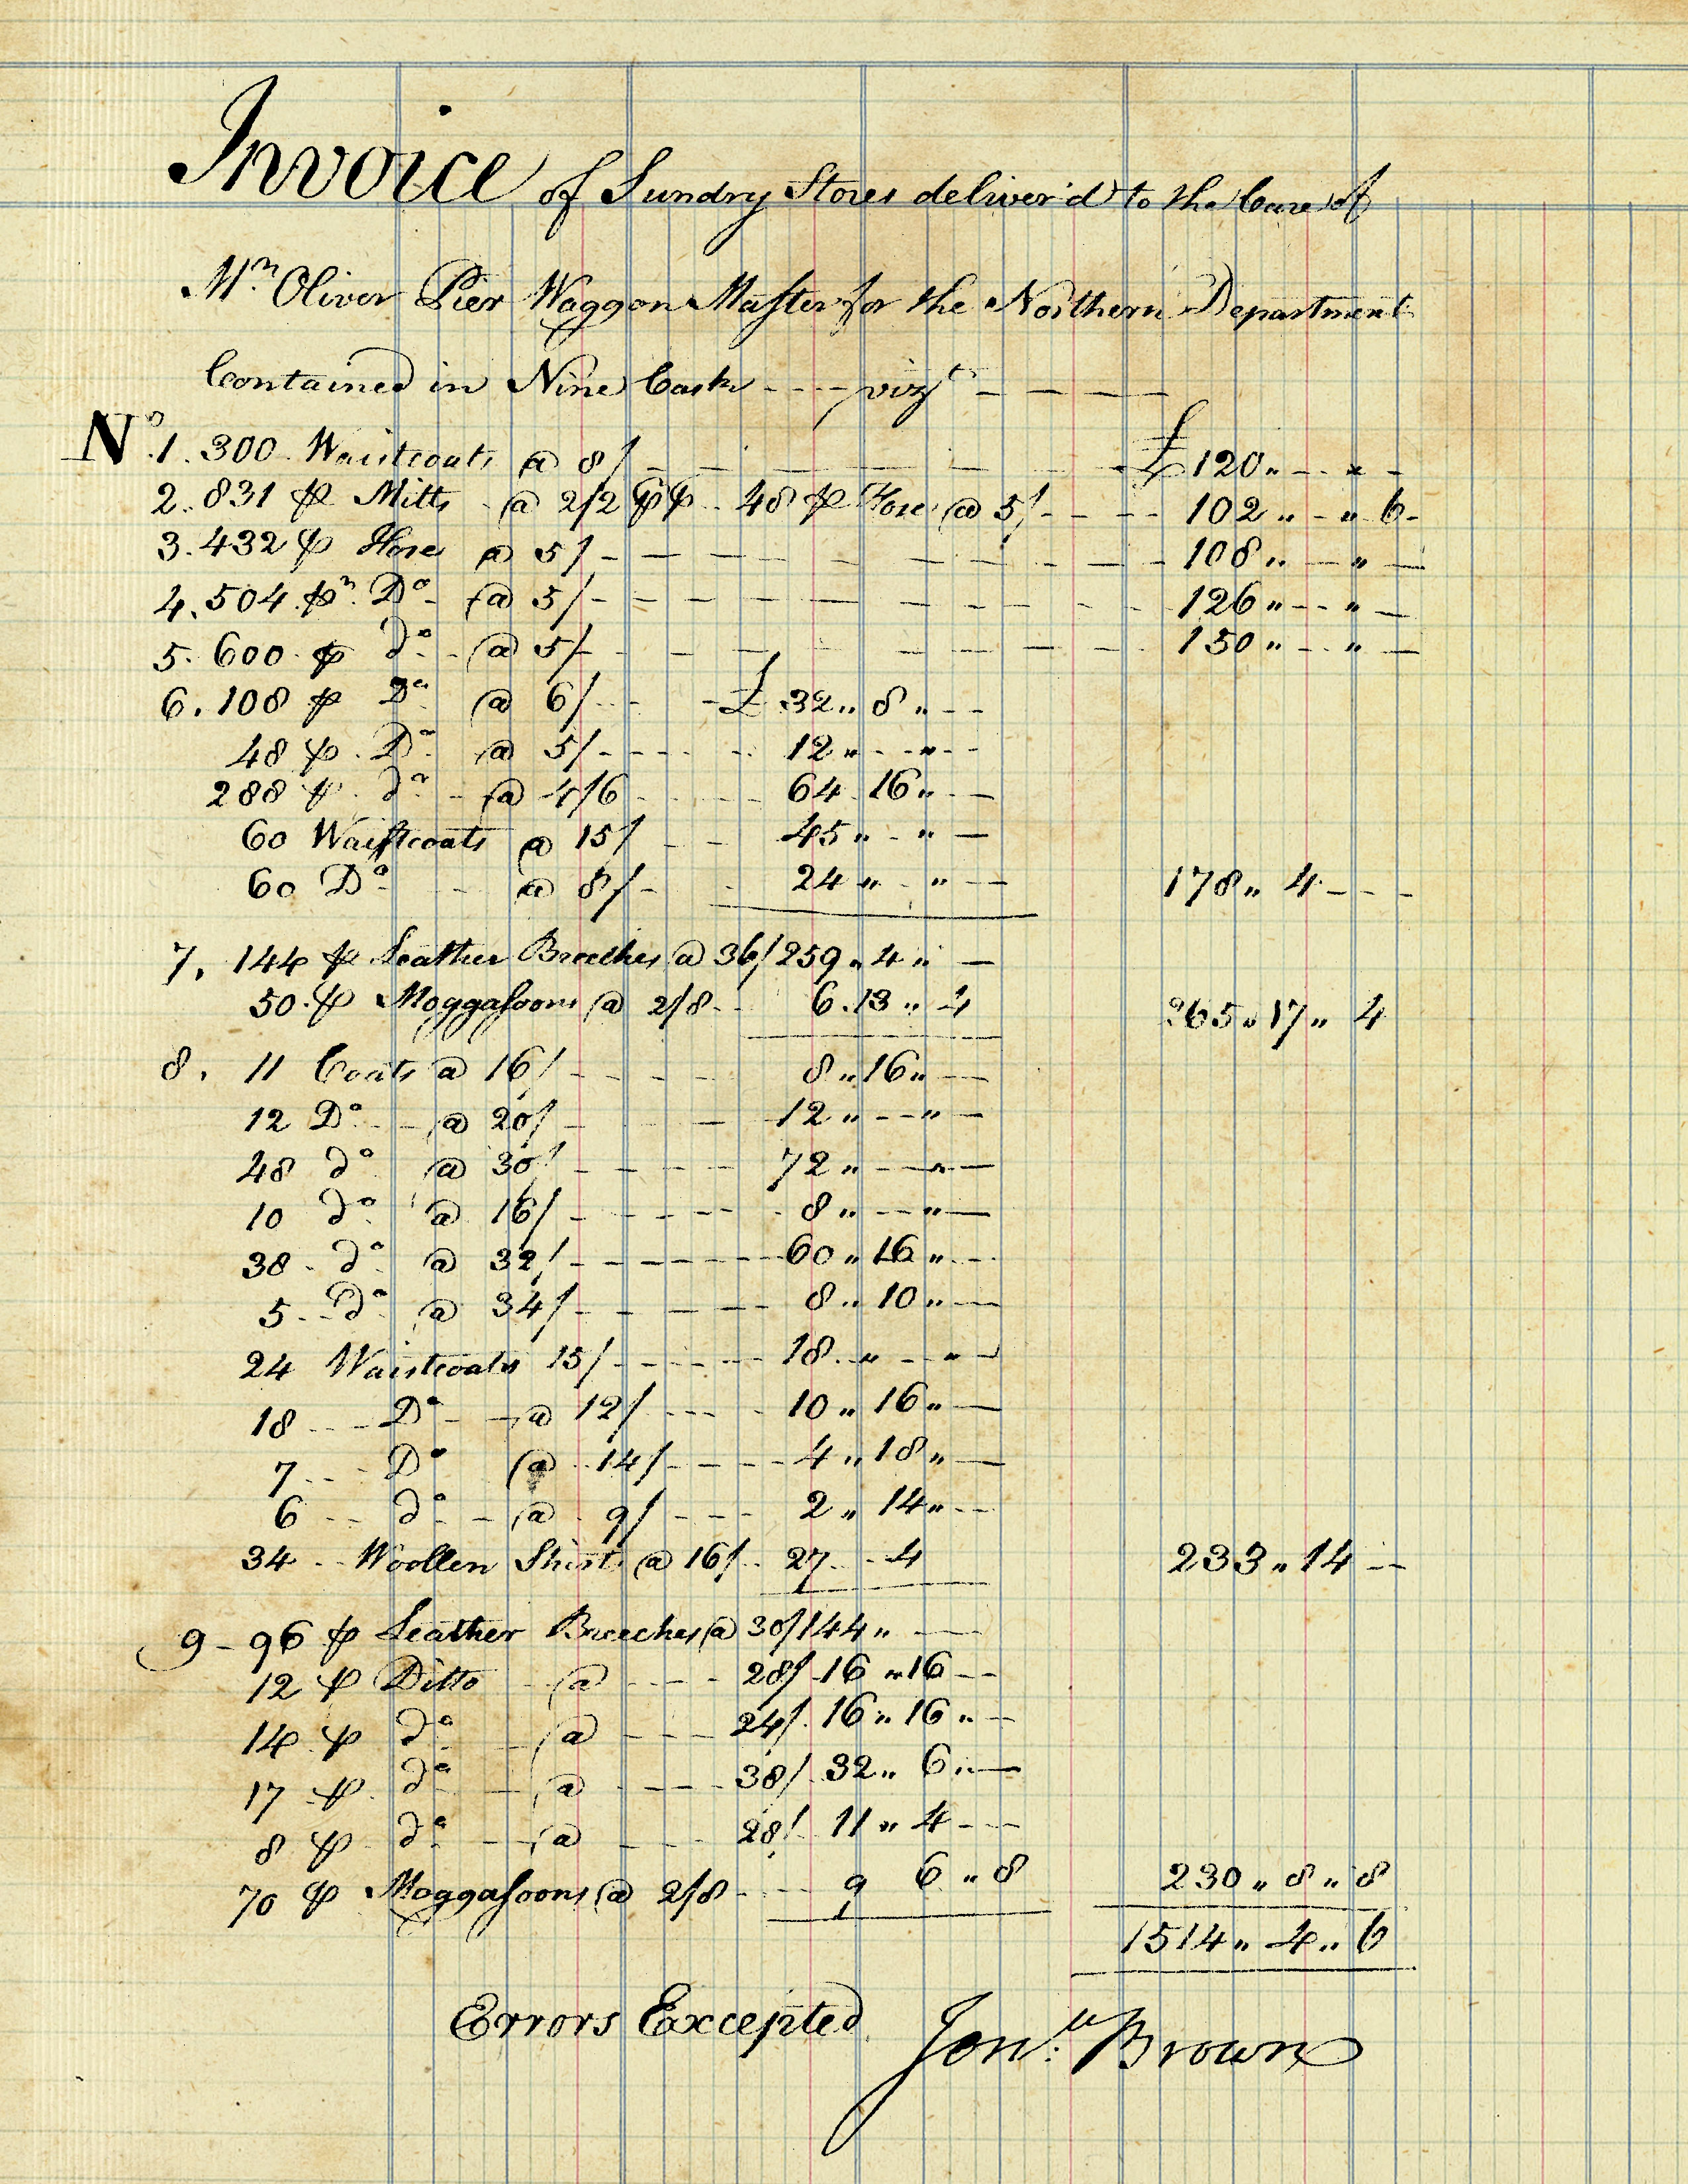 Invoice of Sundry Stores deliver'd to the Care of
Mr. Oliver Pier Waggon Master for the Northern Department
Contained in Nine Casks - - - vizt. - - - -
No. 1. 300 Waistcoats @ 8/ - - - - £120 „ - „ -
2. 831 p Mitts @ 2/2 48 p Hose @ 5/ - - - 102 „ - „ 6 -
3. 432 p Hose @ 5/ - - - - 108 „ - „ -
4. 504 pr Do @ 5/ - - - - 126 „ - „ -
5. 600 p do @ 5/ - - - - 150 „ - „ -
6. 108 p Do @ 6/ - - £ 32 „ 8 „ - -
48 p Do @ 5/ - - - - 12 „ - „ - -
288 p do @ 4/6 - - - 64 16 „ -
60 Waistcoats @ 15/ - - 45 „ - „ -
60 Do @ 8/ - - 24 „ - „ - 178 „ 4 - - -
7. 144 p Leather Breeches @ 36/ 259 „ 4 „ -
50 p Moggasoons @ 2/8 - - 6 . 13 „ 4 265 „ 17 „ 4
8. 11 Coats @ 16/ - - - - 8 „ 16 „ -
12 Do @ 20/ - - - 12 „ - „ -
48 do @ 30/ - - - - 72 „ - „ -
10 do @ 16/ - - - - 8 „ - „ -
38 do @ 32/ - - - - 60 „ 16 „ -
5 do @ 34/ - - - - 8 „ 10 „ -
24 Waistcoats 15/ - - - - 18 „ - „ -
18 Do @ 12/ - - - 10 „ 16 „ -
7 Do @ 14/ - - - - 4 „ 18 „ -
6 do @ 9/ - - - 2 „ 14 „ - -
34 Woollen Shirts @ 16/ 27 - 4 233 „ 14 - -
9 - 96 p Leather Breeches @ 30/ 144 „ -
12 p Ditto @ - - - 28/ 16 „ 16 - -
14 p do @ - - - 24/ 16 „ 16 „ -
17 p do @ - - - 38/ 32 „ 6 „ -
8 p do @ - - - 28/ 11 „ 4 - -
70 p Moggasoons @ 2/8 - - - 9 6 „ 8 230 „ 8 „ 8
1514 „ 4 „ 6
Errors Excepted Jonn. Brown